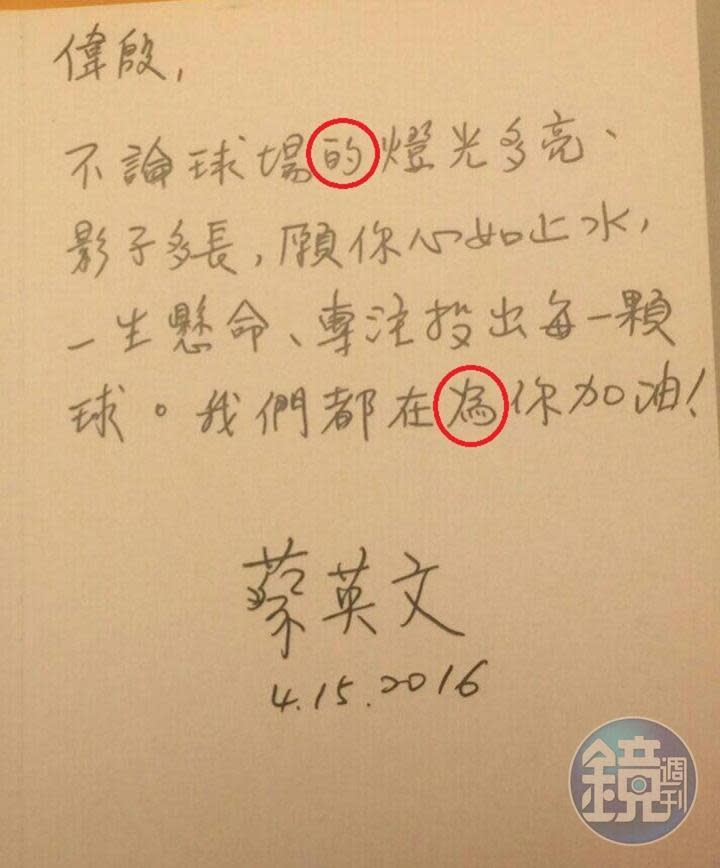 偉殷,
不論球場的燈光多亮、
影子多長,願你心如止水,
一生懸命、專注投出每一顆
球。我們都在為你加油!
蔡英文
4.15.2016
鏡週刊